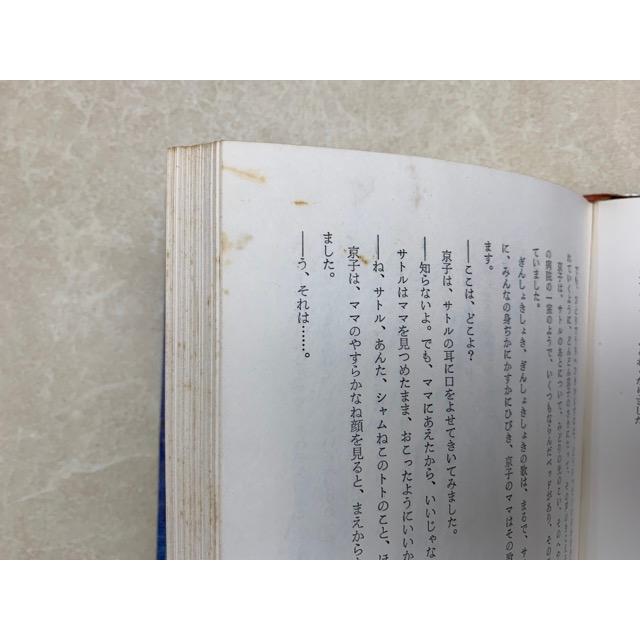 の病院の一室のようで、いくつもならんだベッドがあり、その
ていました。
ぎんしょきしょき、ぎんしょきしょきの歌は、まるで、サ
に、みんなの身ぢかにかすかにひびき、京子のママはその歌
ます。
――ここは、どこよ?
京子は、サトルの耳に口をよせてきいてみました。
――知らないよ。でも、ママにあえたから、いいじゃな
サトルはママを見つめたまま、おこったようにいいか
――ね、サトル、あんた、シャムねこのトトのこと、ほ
京子は、ママのやすらかなね顔を見ると、まえから
ました。
――う、それは……。